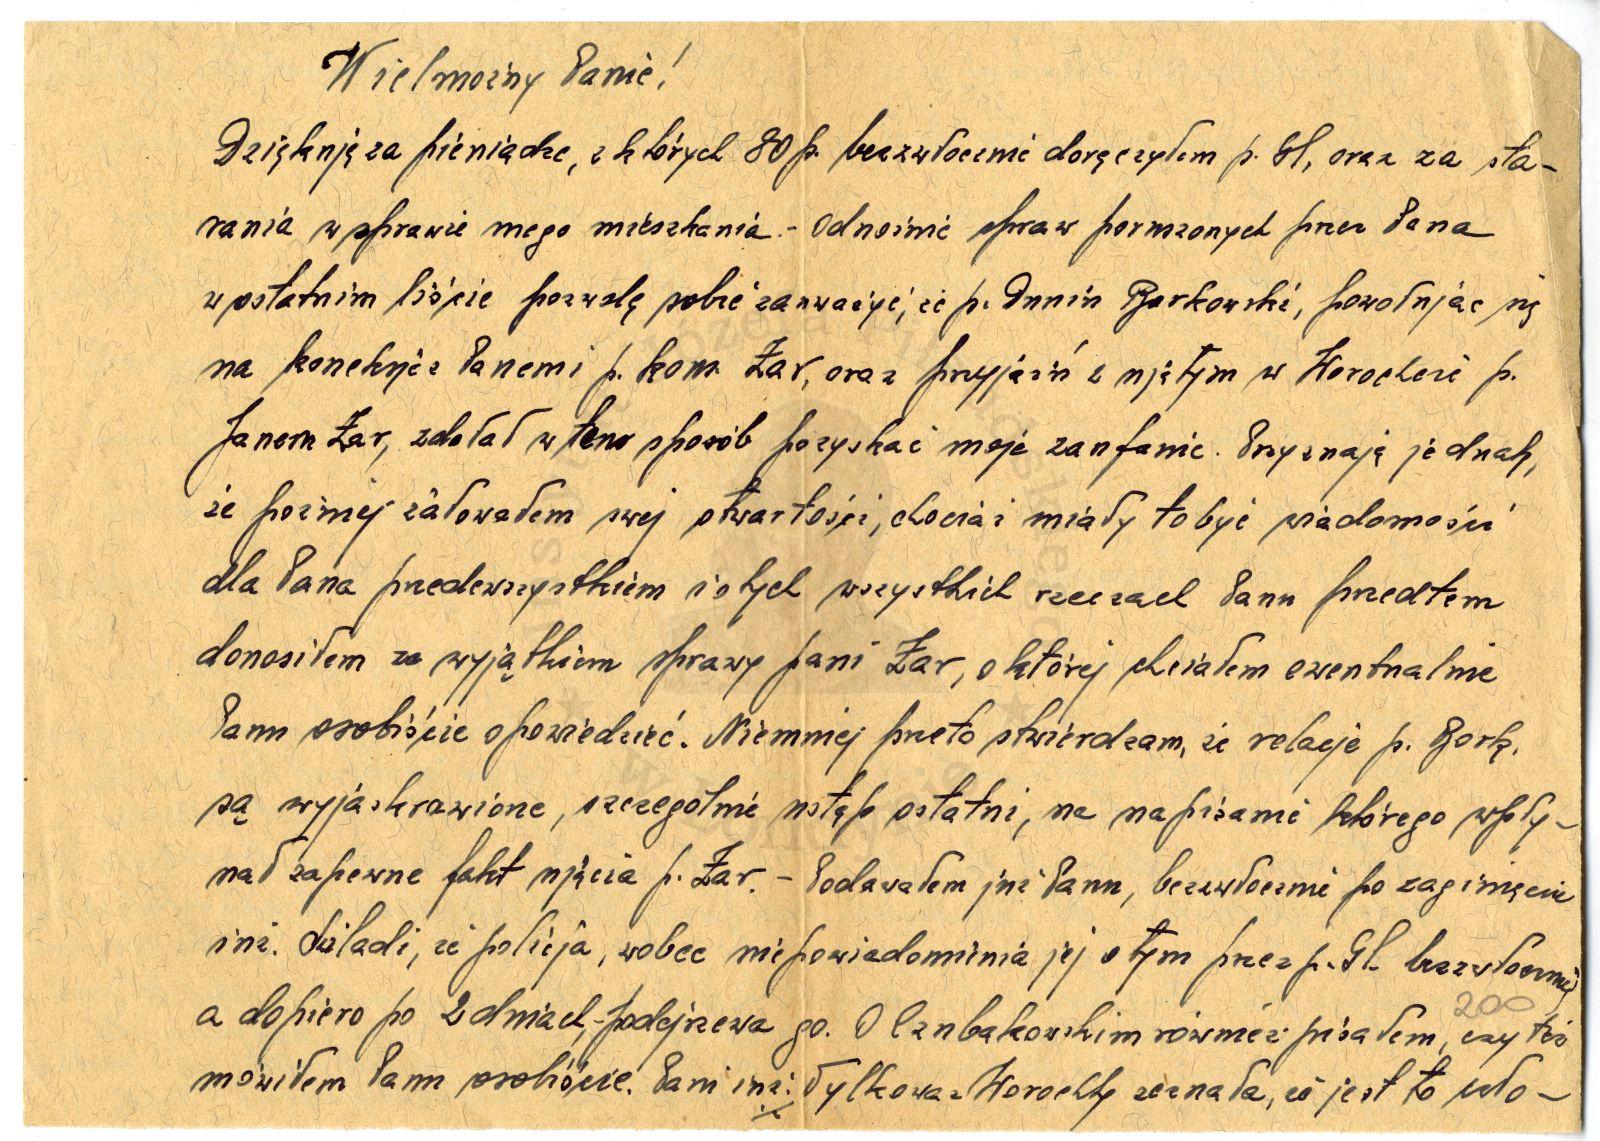 Wielmożny Panie!
Dziękuję za pieniądze, z których 80 p. bezzwłocznie doręczyłem p. Gł, oraz za sta-
rania w sprawie mego mieszkania. - Odnośnie spraw poruszonych przez Pana
w ostatnim liście pozwolę sobie zauważyć, że p. Dunin Borkowski, powołując się
na koneksje z Panem i p. kom. Żar, oraz przyjaźń z ujętym w Worochcie p.
Janem Żar, zdołał w ten sposób pozyskać moje zaufanie. Przyznaję jednak,
że poźniej żałowałem swej otwartości, chociaż miały to być wiadomości
dla Pana przedewszystkiem i o tych wszystkich rzeczach Panu przedtem
donosiłem za wyjątkiem sprawy pani Żar, o której chciałem ewentualnie
Panu osobiście opowiedzieć. Niemniej przeto stwierdzam, że relacje p. Bork.
są wyjaskrawione, szczegolnie ustęp ostatni, na napisanie którego wpły-
nał zapewne fakt ujęcia p. Żar. - Podawałem już Panu, bezzwłocznie po zaginięciu
inż. że policja, wobec niepowiadomienia jej o tym przez p. Gł. bezzwłocznie,
a dopiero po 2 dniach, podejrzewa go. O również pisałem, czy też
200
mówiłem Panu osobiście. Pani inż. Tylkowa z Worochty zeznała, że jest to zło-